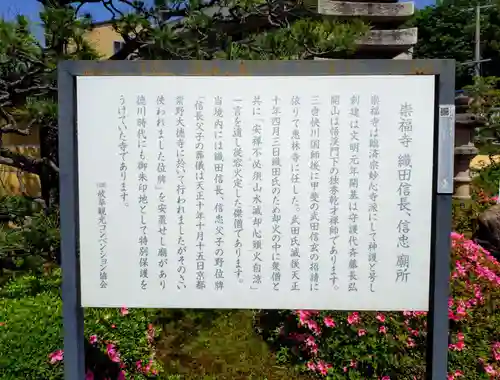 崇福寺 織田信長、信忠 廟所
崇福寺は臨済宗妙心寺派にして神護と号し
創建は文明元年開基は守護代斉藤長弘
開山は悟渓門下の独秀乾才禅師であります。
三世快川国師後に甲斐の武田信玄の招請に
依りて恵林寺に任した。武田氏滅後天正
十年四月三日織田氏のため却火の中に衆僧と
共に「安禅不必須山水滅却心頭火自涼」
一言を遺し従容火定した傑僧であります。
当境内には織田信長、信忠父子の野位牌
「信長父子の葬儀は天正十年十月十五日京都
紫野大徳寺に於いて行われましたがそのさい
使われました位牌」を安置せし廟があり
徳川時代にも御朱印地として特別保護を
うけていた寺であります。
岐阜観光コンベンション協会